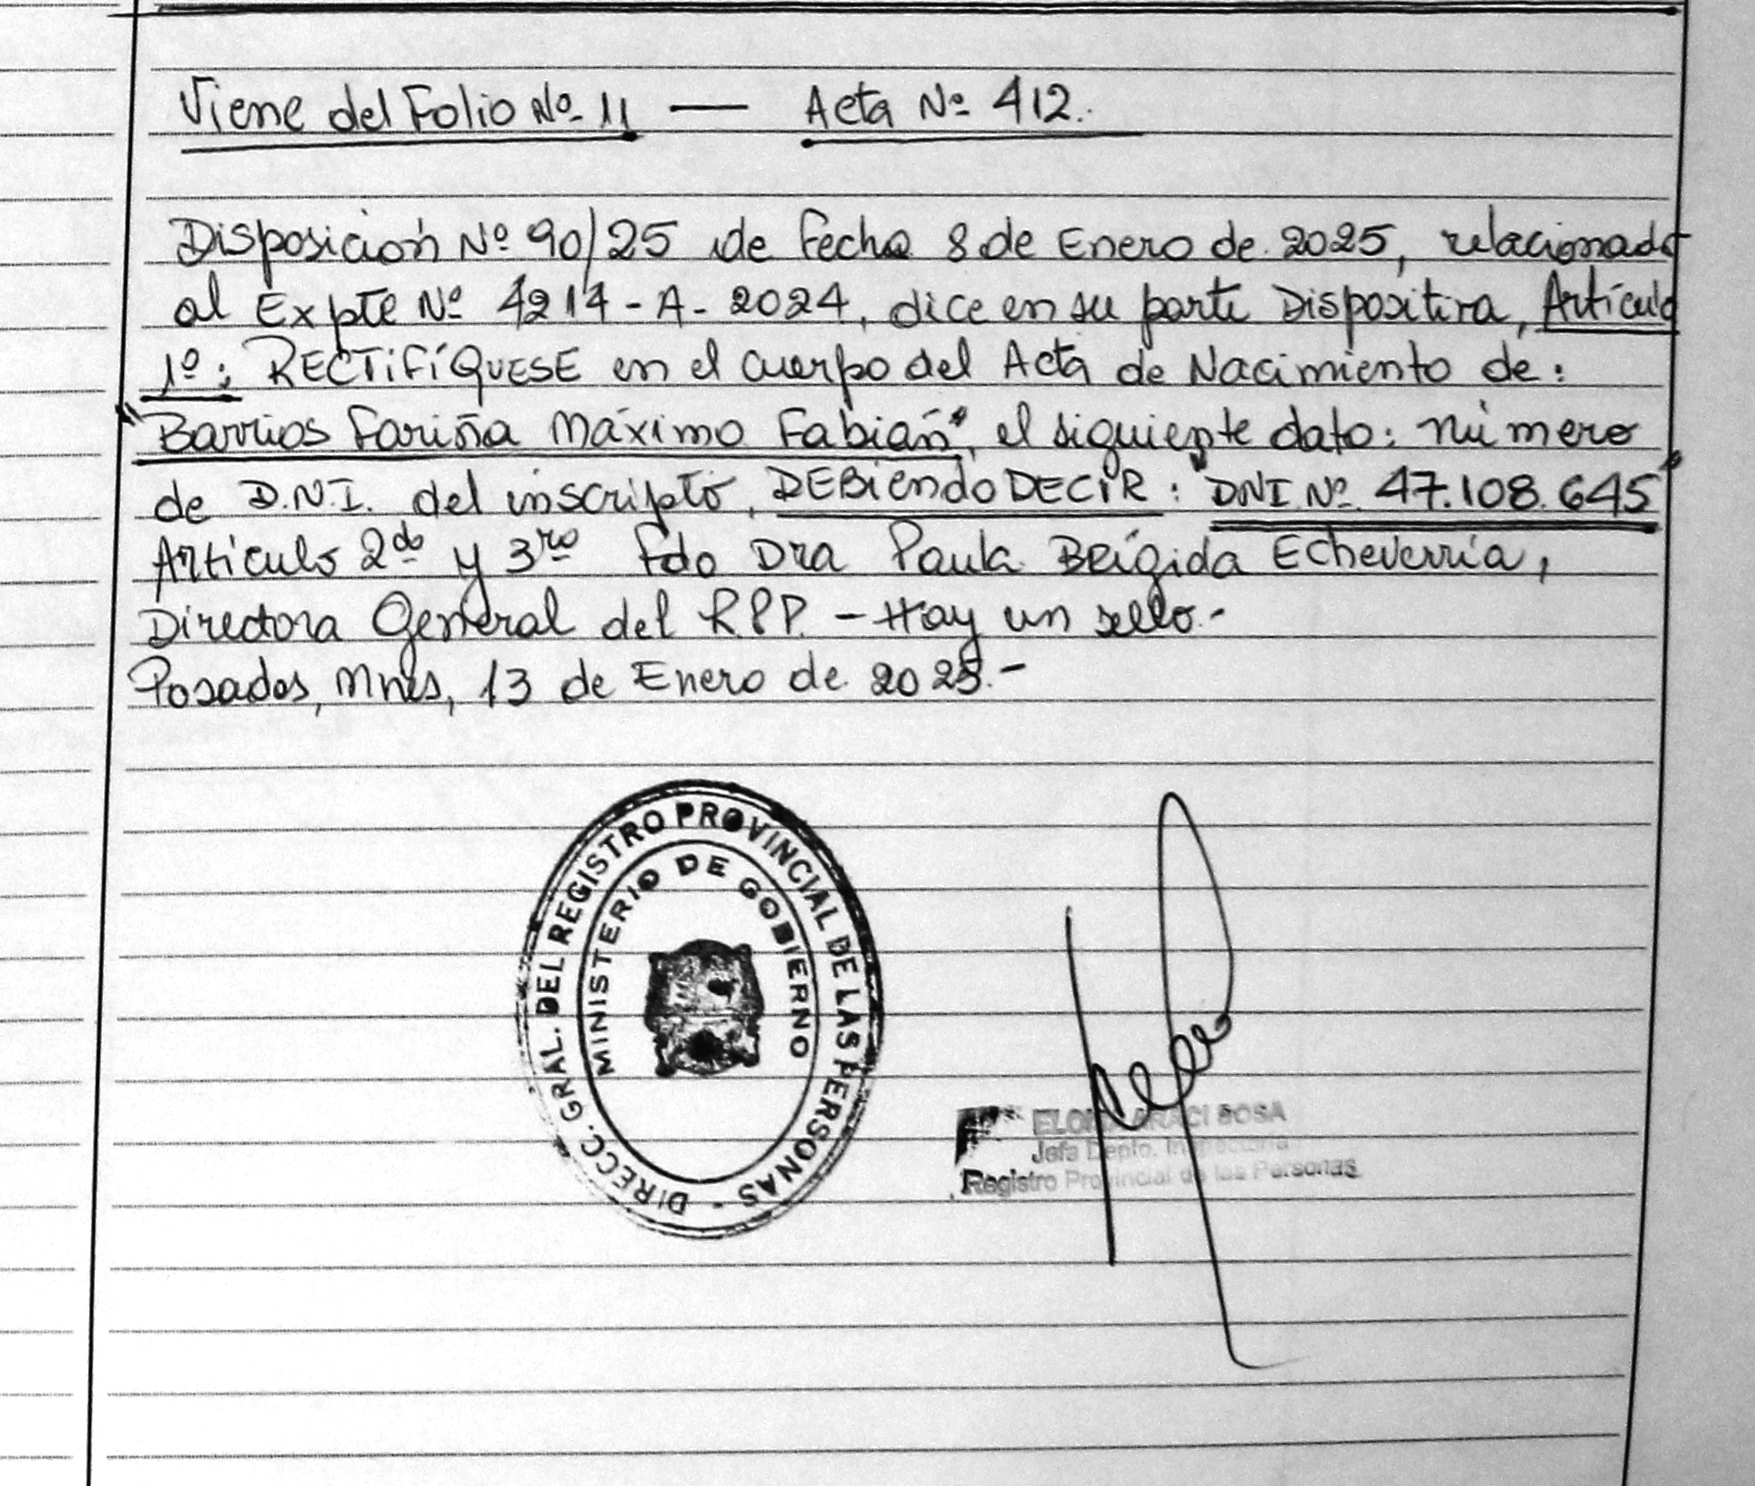 Viene del Folio Nº 11 — Acta Nº 412.
Disposición Nº 90/25 de fecha 8 de Enero de 2025, relacionado
al Expte Nº 4214-A-2024, dice en su parte Dispositiva, Artículo
1º: RECTIFÍQUESE en el cuerpo del Acta de Nacimiento de:
"Barrios Fariña Máximo Fabián", el siguiente dato: número
de D.N.I. del inscripto, DEBIENDO DECIR: "DNI Nº 47.108.645"
Artículo 2do y 3ro Fdo Dra Paula Brígida Echeverría,
Directora General del RPP. - Hay un sello.-
Posadas, Mnes, 13 de Enero de 2025.-
DIRECC. GRAL. DEL REGISTRO PROVINCIAL DE LAS PERSONAS -
MINISTERIO DE GOBIERNO
ARACI SOSA
Jefa Depto.
Registro Provincial de las Personas